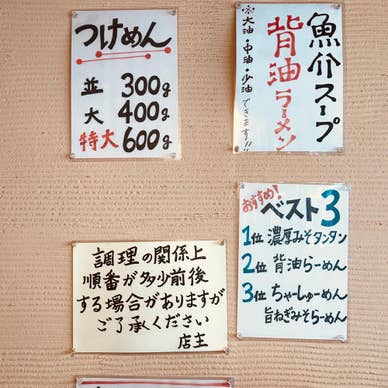 つけめん
並 300g
大 400g
特大 600g
魚介スープ
背油ラーメン
※大油・中油・少油できます!!
おすすめ!
ベスト3
1位 濃厚みそタンタン
2位 背油らーめん
3位 ちゃーしゅーめん
旨ねぎみそらーめん
調理の関係上
順番が多少前後
する場合がありますが
ご了承ください
店主